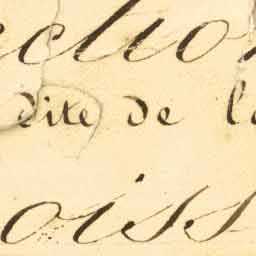 ection
dite de la
oiss